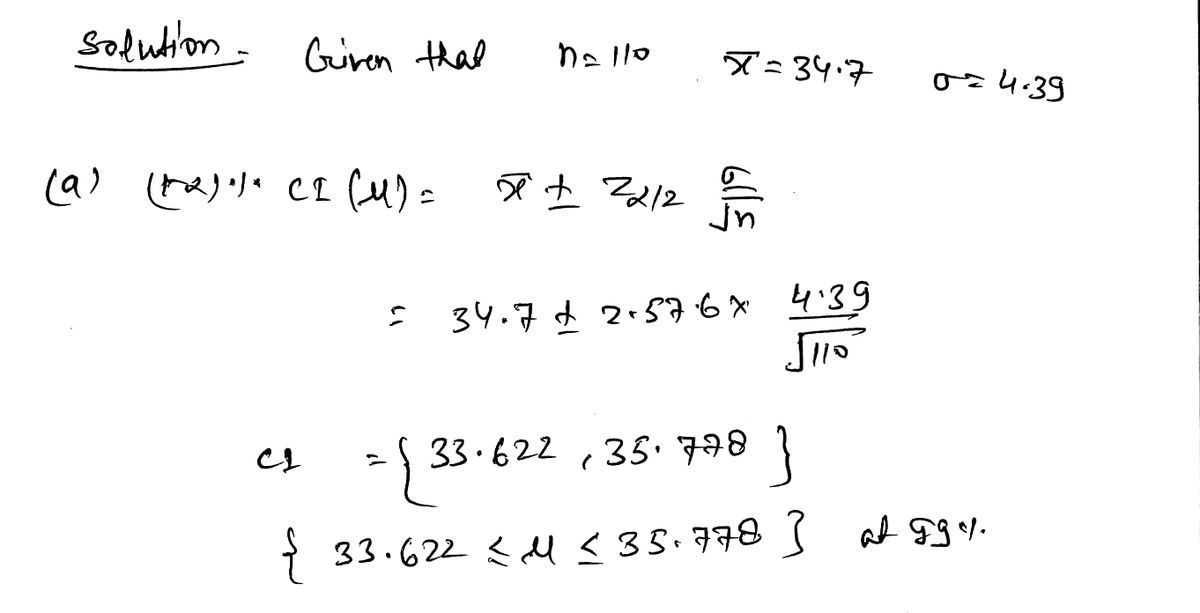 Solution - Given that n = 110 x̄ = 34.7 σ = 4.39
(a) (1-α)·/· CI (μ) = x̄ ± Zα/2 σ/√n
= 34.7 ± 2.57.6 × 4.39/√110
CI = { 33.622 , 35.778 }
{ 33.622 ≤ μ ≤ 35.778 } at 99 %.